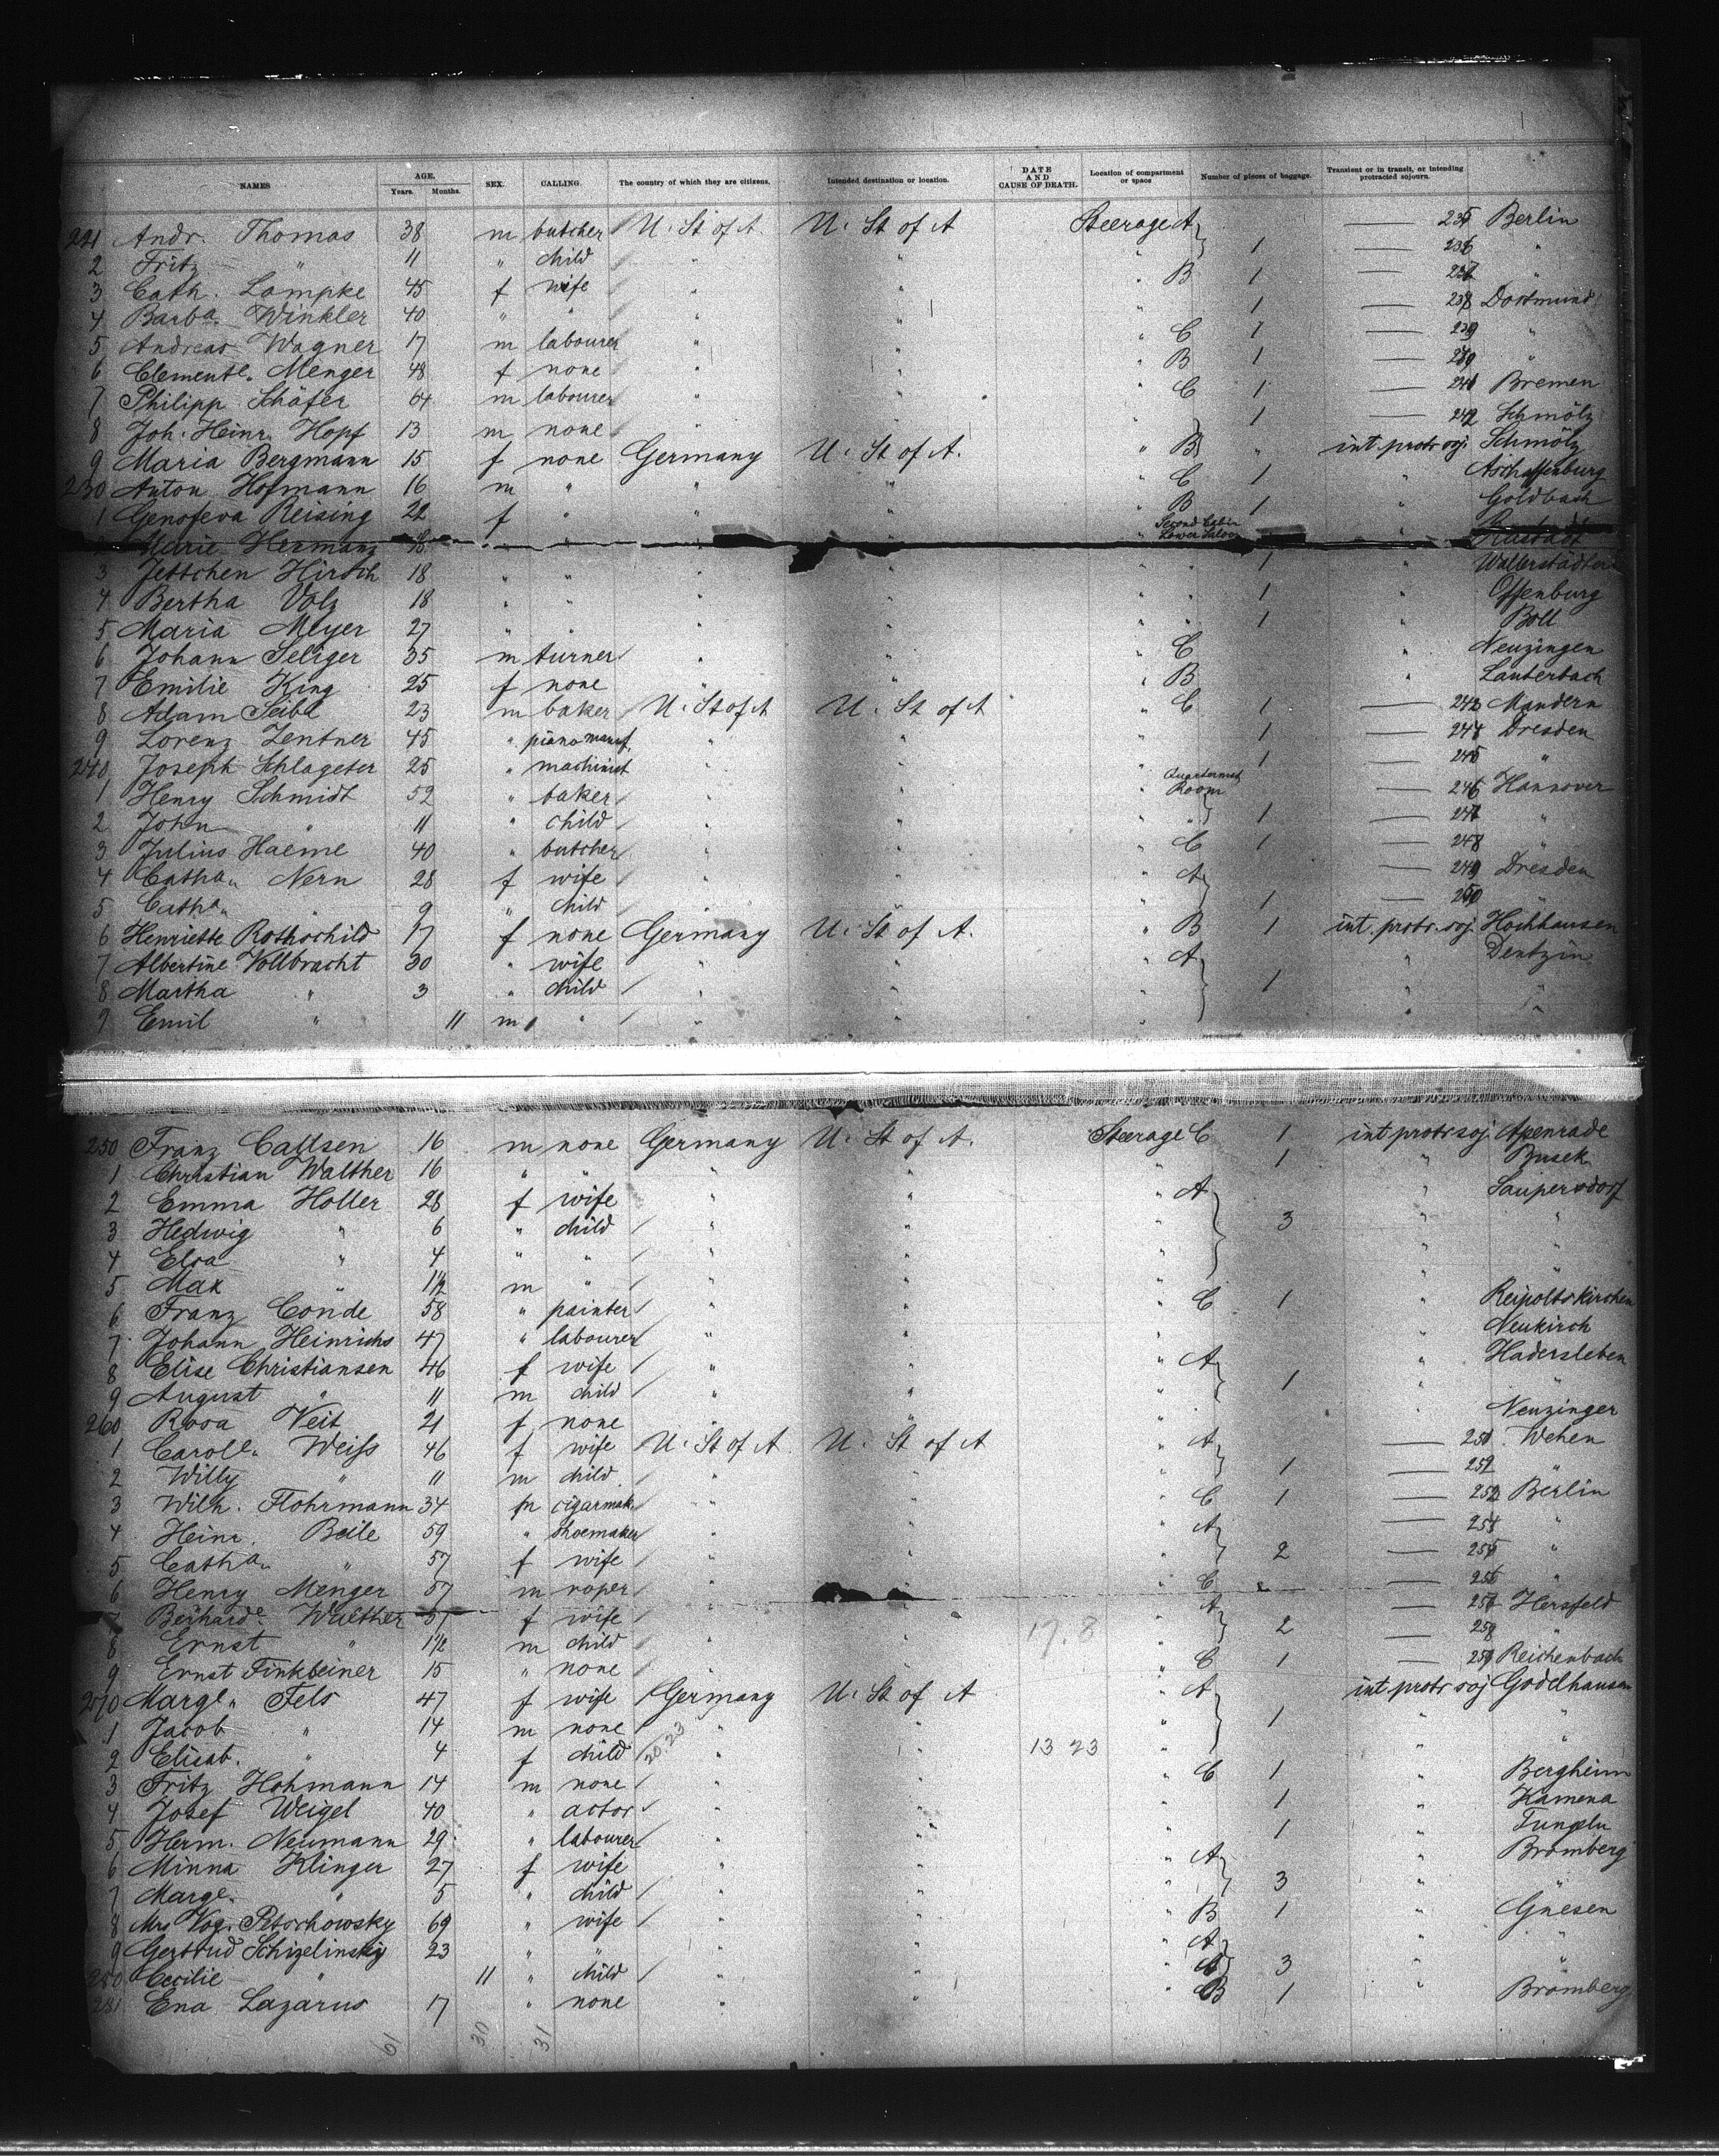 NAMES AGE. Years. Months. SEX. CALLING. The country of which they are citizens. Intended destination or location. DATE AND CAUSE OF DEATH. Location of compartment or space Number of pieces of baggage. Transient or in transit, or intending protracted sojourn.
221 Andr. Thomas 38 m butcher U. St of A U. St of A Steerage A 235 Berlin
2 Fritz " 11 " child " " " 1 236 "
3 Cath. Lampke 45 f wife " " " B 1 237 "
4 Barba. Winkler 40 " " " " " 1 238 Dortmund
5 Andreas Wagner 17 m labourer " " " C 1 239 "
6 Clemente. Menger 48 f none " " " B 1 240 "
7 Philipp Schäfer 64 m labourer " " " C 1 241 Bremen
8 Joh. Heinr. Hopf 13 m none " " " 1 242 Schmölz
9 Maria Bergmann 15 f none Germany U. St of A. " B " int. protr. soj. Schmölz
230 Anton Hofmann 16 m " " " " C 1 " Aschaffenburg
1 Genofeva Reising 22 f " " " " B 1 " Goldbach
2 Marie Hermanz 18 " " " " Second Cabin Lower Saloon " Rastadt
3 Jettchen Hirsch 18 " " " " " " 1 " Wallerstädten
4 Bertha Volz 18 " " " " " " 1 " Offenburg
5 Maria Meyer 27 " " " " " " 1 " Boll
6 Johann Seliger 35 m turner " " " C " Neuzingen
7 Emilie King 25 f none " " " B " Lauterbach
8 Adam Seibl 23 m baker U. St of A U. St of A " C 1 243 Mandern
9 Lorenz Zentner 45 " piano manuf. " " " " 1 244 Dresden
240 Joseph Schlageter 25 " machinist " " " " 1 245 "
1 Henry Schmidt 52 " baker " " Quartermst Room 246 Hannover
2 John " 11 " child " " " " 1 247 "
3 Julius Haeme 40 " butcher " " " C 1 248 "
4 Catha. Nern 28 f wife " " " A 249 Dresden
5 Catha. " 9 " child " " " 1 250 "
6 Henriette Rothschild 17 f none Germany U. St of A. " B 1 int. protr. soj. Hochhausen
7 Albertine Vollbracht 30 " wife " " " A " Dentzin
8 Martha " 3 " child " " " 1 " "
9 Emil " 11 m " " " " " "
250 Franz Callsen 16 m none Germany U. St of A. Steerage C 1 int protr soj. Apenrade
1 Christian Walther 16 " " " " " " 1 " Busek
2 Emma Holler 28 f wife " " " A " Saupersdorf
3 Hedwig " 6 " child " " " 3 " "
4 Elsa " 4 " " " " " " "
5 Max " 1 1/2 m " " " " " "
6 Franz Conde 58 " painter " " " C 1 " Reipoltskirchen
7 Johann Heinrichs 47 " labourer " " " " " Neukirch
8 Elise Christiansen 46 f wife " " " A " Hadersleben
9 August " 11 m child " " " 1 " "
260 Rosa Veit 21 f none " " " " Neuzinger
1 Carole. Weiss 46 f wife U. St of A U. St of A " A 251 Wehen
2 Willy " 11 m child " " " 1 252 "
3 Wilh. Flohrmann 34 m cigarmak. " " " C 1 253 Berlin
4 Heinr. Beile 59 " shoemaker " " " A 254 "
5 Catha. " 57 f wife " " " 2 255 "
6 Henry Menger 57 m roper " " " C 256 "
7 Walther f wife " " " A 257 Hersfeld
8 Ernst " 1 1/2 m child " " 17. 8 " 2 258 "
9 Ernst Finkbeiner 15 " none " " " C 1 259 Reichenbach
270 Marge. Fels 47 f wife Germany U. St of A " A int protr soj Goddhausen
1 Jacob " 14 m none " " " 1 " "
2 Elisab. " 4 f child 20. 23 " " 13 23 " " "
3 Fritz Hohmann 14 m none " " " C 1 " Bergheim
4 Josef Weigel 40 " actor " " " " 1 " Kamena
5 Herm. Neumann 29 " labourer " " " " 1 "
6 Minna Klinger 27 f wife " " " A " Bromberg
7 Marge. " 5 " child " " " 3 " "
8 Mrs Vog. Petschowsky 69 " wife " " " B 1 " Gnesen
9 Gertrud Schizelinsky 23 " " " " " A " "
280 Cecilie " 11 " child " " " 3 " "
281 Ena Lazarus 17 " none " " " B 1 " Bromberg
61 30 31